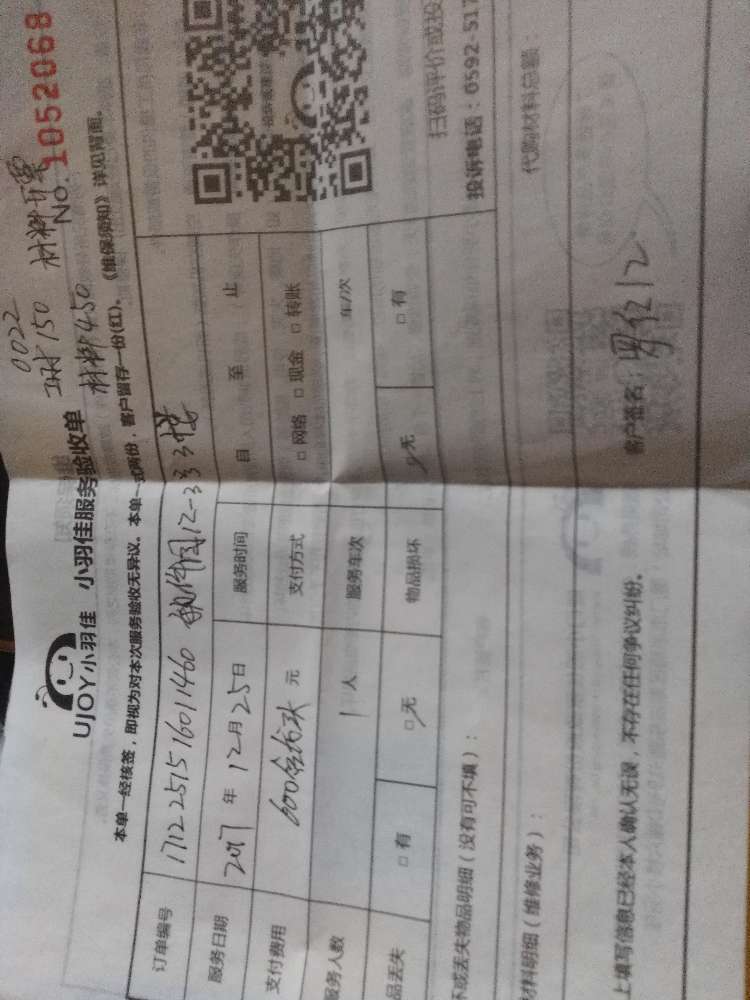 0022
工时150 材料开票
材料450
No. 1052068
UJOY小羽佳 小羽佳服务验收单
本单一经核签，即视为对本次服务验收无异议。本单一式两份，客户留存一份(红)。《维保须知》详见背面。
订单编号 1712251516011460 软件园12-3号3楼
服务日期 2017年12月25日 服务时间 自 至 止
支付费用 600 元 支付方式 □网络 □现金 □转账
服务人数 1人 服务车次 车/次
品丢失 □有 □无 物品损坏 无 □有
坏或丢失物品明细（没有可不填）：
材料明细（维修业务）：
代购材料总额：
上填写信息已经本人确认无误，不存在任何争议纠纷。
客户签名：
扫码评价或投
投诉电话：0592-517